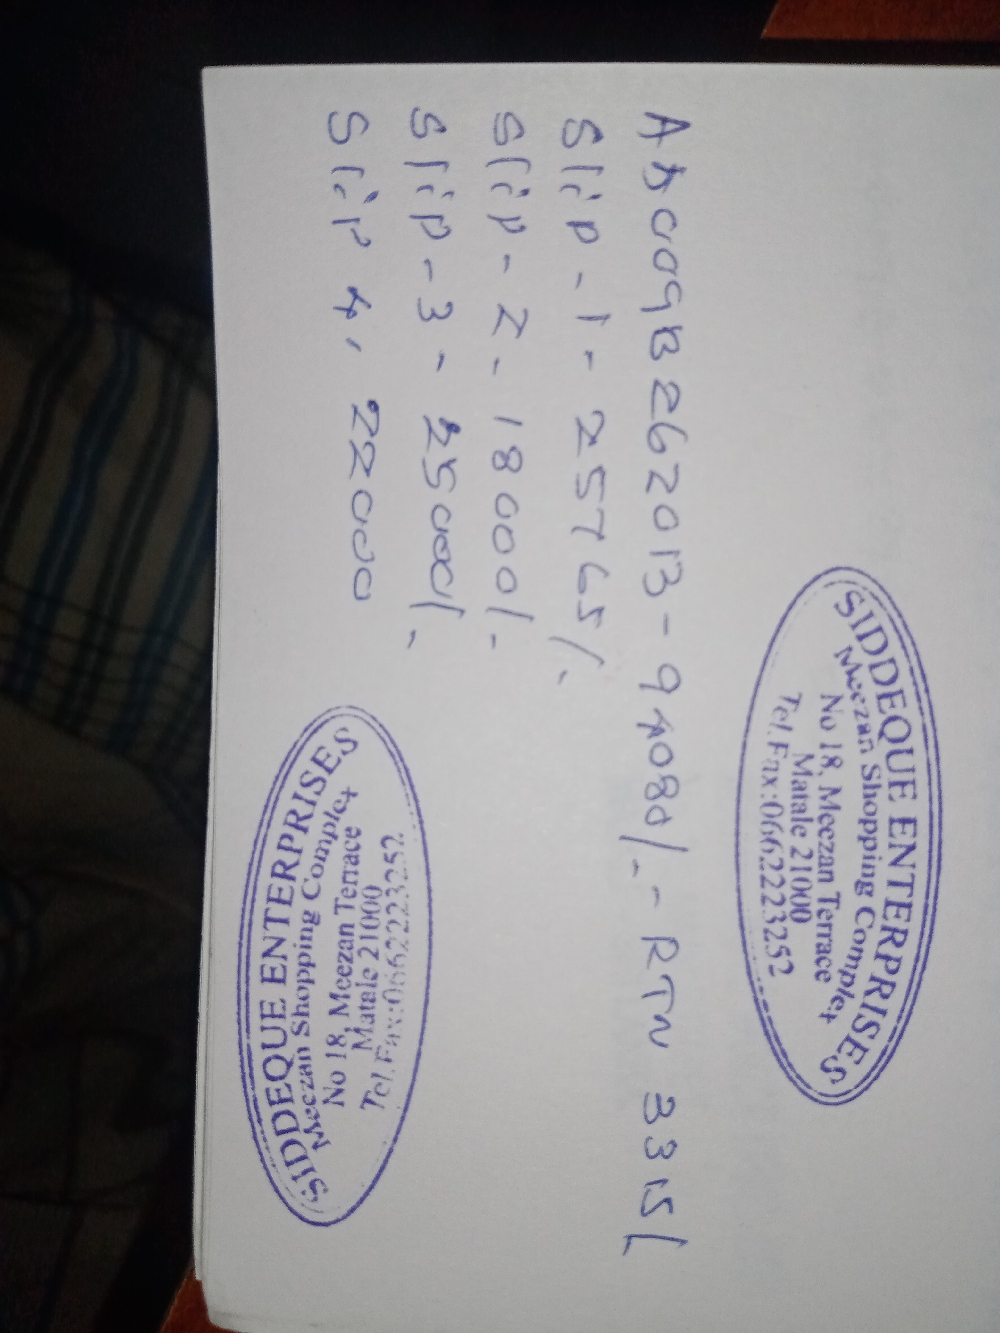 SIDDEQUE ENTERPRISES
Meezan Shopping Complex
No 18, Meezan Terrace
Matale 21000
Tel.Fax:0662223252
262013 - 94080/- - RTN 3315/
Slip - 1 - 25765/-
Slip - 2 - 18000/-
Slip - 3 - 25000/-
Slip 4, 22000
SIDDEQUE ENTERPRISES
Meezan Shopping Complex
No 18, Meezan Terrace
Matale 21000
Tel.Fax:0662223252